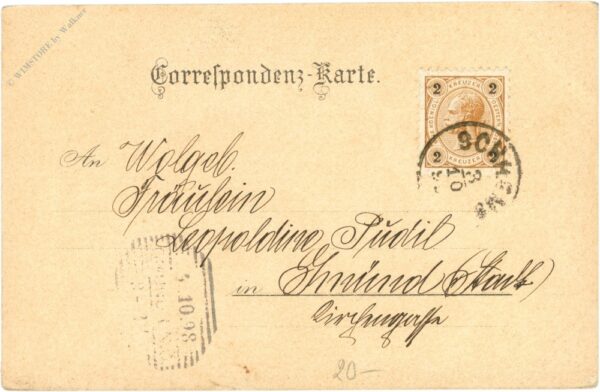 © WIMSTORE by Walkner
Correspondenz-Karte.
2 KREUZER 2
2 KREUZER 2
SCHREMS
3
10
An Wolgeb.
Fräulein
Leopoldine Pudil
in Gmünd (Stadt)
Kirchengasse
3.10.98
20-